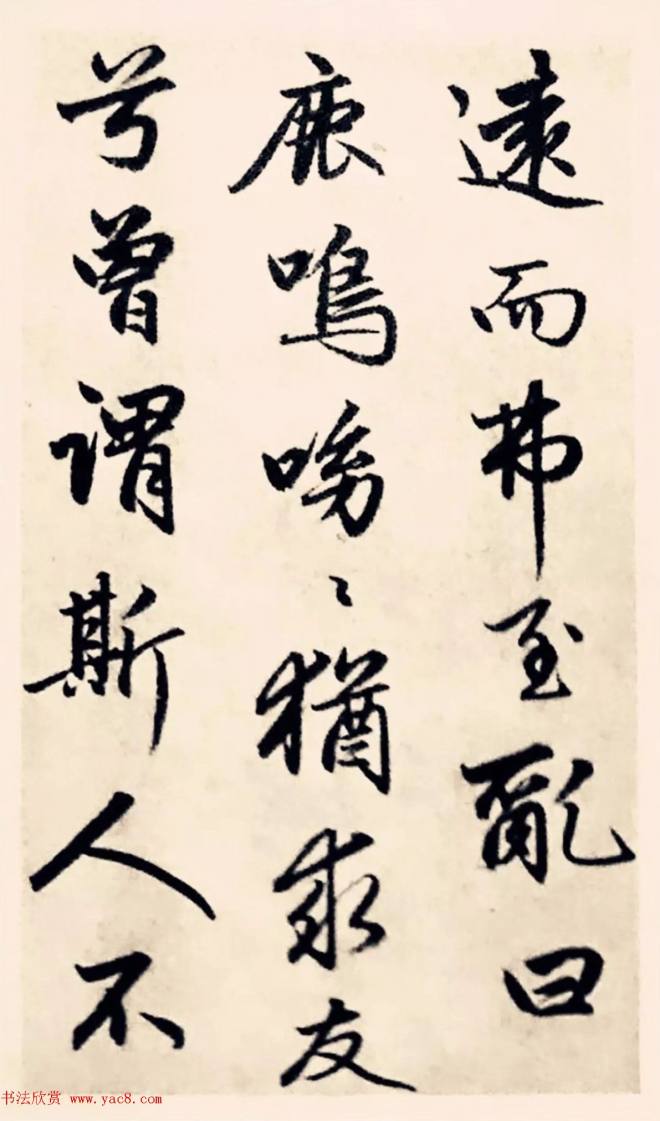 遠而弗至亂曰
鹿鳴呦〻猶求友
兮曾謂斯人不
书法欣赏 www.yac8.com